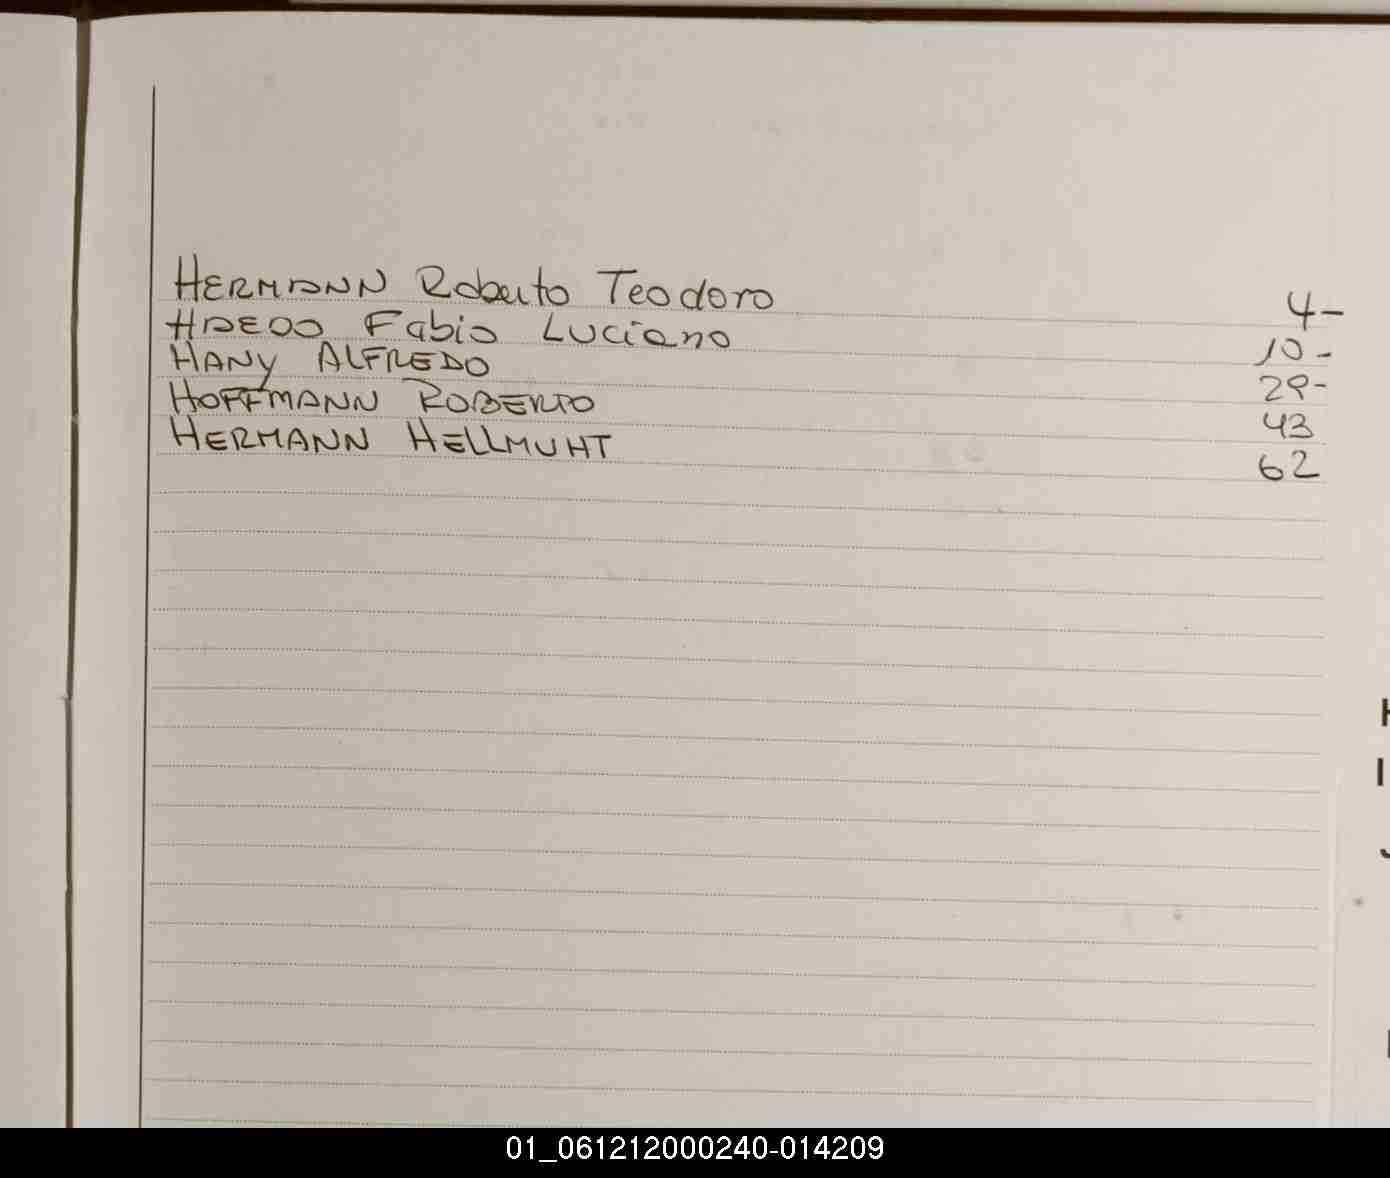 HERMANN Roberto Teodoro 4-
HAEDO Fabio Luciano 10-
HANY ALFREDO 29-
HOFFMANN ROBERTO 43
HERMANN HELLMUHT 62
I
J
01_061212000240-014209